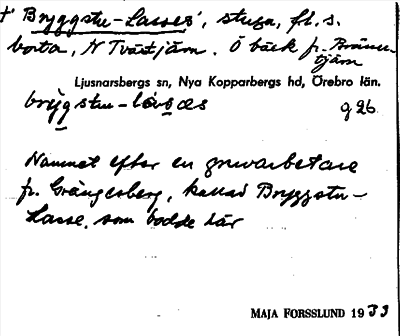 † Bryggstu-Lasses', stuga, fl. s.
borta, N Tvärtjärn. Ö bäck fr. Bränn-
tjärn
Ljusnarsbergs sn, Nya Kopparbergs hd, Örebro län.
bryg̀stu-lasəs g 26
Namnet efter en gruvarbetare
fr. Grängesberg, kallad Bryggstu-
Lasse, som bodde här
MAJA FORSSLUND 1933